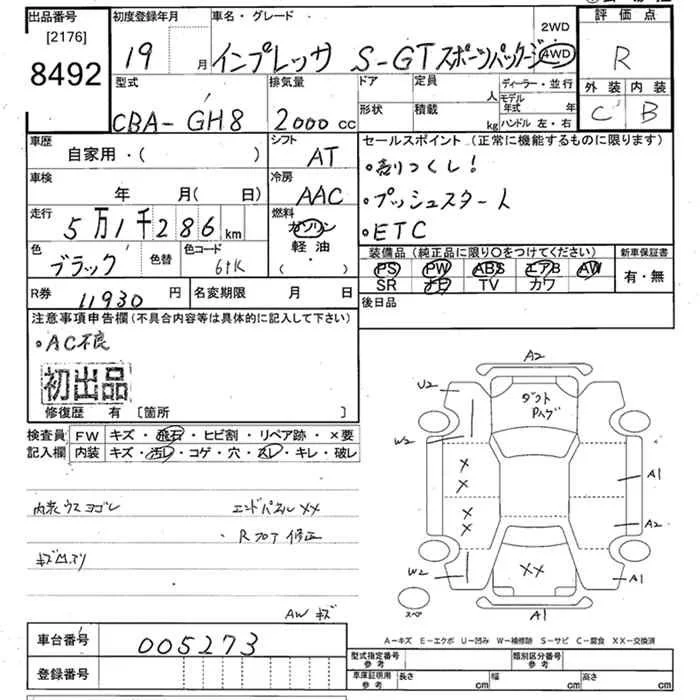 出品番号 初度登録年月 車名・グレード 2WD 評価点
[2176] 19 月 インプレッサ S-GT スポーツパッケージ 4WD R
8492
型式 排気量 ドア 定員 人 ディーラー・並行 外装 内装
CBA- GH8 2000 cc 形状 積載 kg モデル年式 年 C B
ハンドル 左・右
車歴 シフト セールスポイント (正常に機能するものに限ります)
自家用・( ) AT ・売りつくし!
車検 冷房 ・プッシュスタート
年 月( 日) AAC ・ETC
走行 燃料
5万1千286km ガソリン
色 色替 色コード 軽油・ 装備品(純正品に限り○をつけてください) 新車保証書
ブラック ( ) PS PW ABS エアB AW 有・無
SR ナビ TV カワ
R券 11930 円 名変期限 月 日 後日品
注意事項申告欄(不具合内容等は具体的に記入して下さい)
・AC不良
初出品
修復歴 有 [箇所 ]
検査員 FW キズ・飛石・ヒビ割・リペア跡・×要
記入欄 内装 キズ・汚レ・コゲ・穴・スレ・キレ・破レ
内装 ウス ヨゴレ エンドパネル ××
・Rフロア 修正
AW キズ
A2
U2
ダクト
W2
×
×
×
×
A1
A2
W2
××
A1
スペア
A1
A-キズ E-エクボ U-凹み W-補修跡 S-サビ C-腐食 XX-交換済
車台番号 005273
登録番号
型式指定番号 参考 類別区分番号 参考
車庫証明用 参考 長さ cm 幅 cm 高さ cm